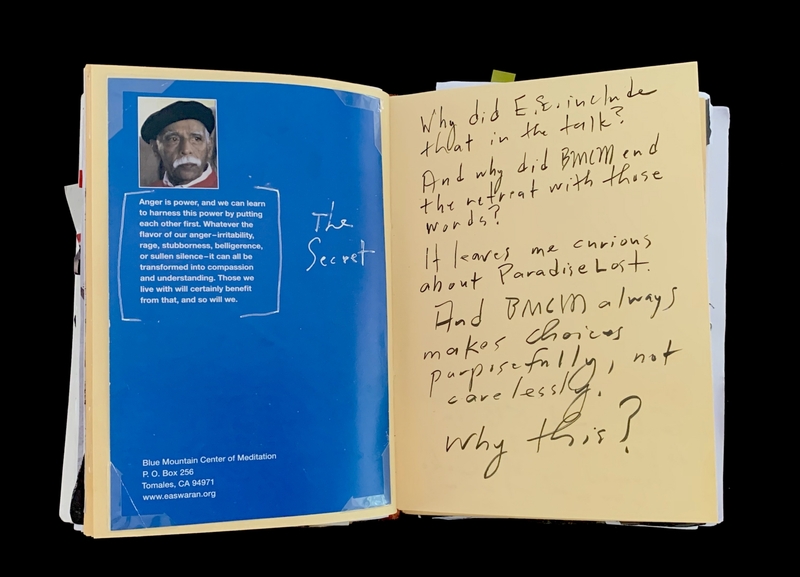 Anger is power, and we can learn
to harness this power by putting
each other first. Whatever the
flavor of our anger–irritability,
rage, stubbornness, belligerence,
or sullen silence–it can all be
transformed into compassion
and understanding. Those we
live with will certainly benefit
from that, and so will we.
The
Secret
Blue Mountain Center of Meditation
P. O. Box 256
Tomales, CA 94971
www.easwaran.org
Why did E.E. include
that in the talk?
And why did BMCM end
the retreat with those
words?
It leaves me curious
about Paradise Lost.
And BMCM always
makes choices
purposefully, not
carelessly.
Why this?